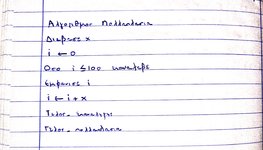 Αλγόριθμος Πολλαπλασια
Διάβασε x
i ← 0
Όσο i ≤ 100 επανέλαβε
Εμφάνισε i
i ← i + x
Τέλος_επανάληψης
Τέλος_